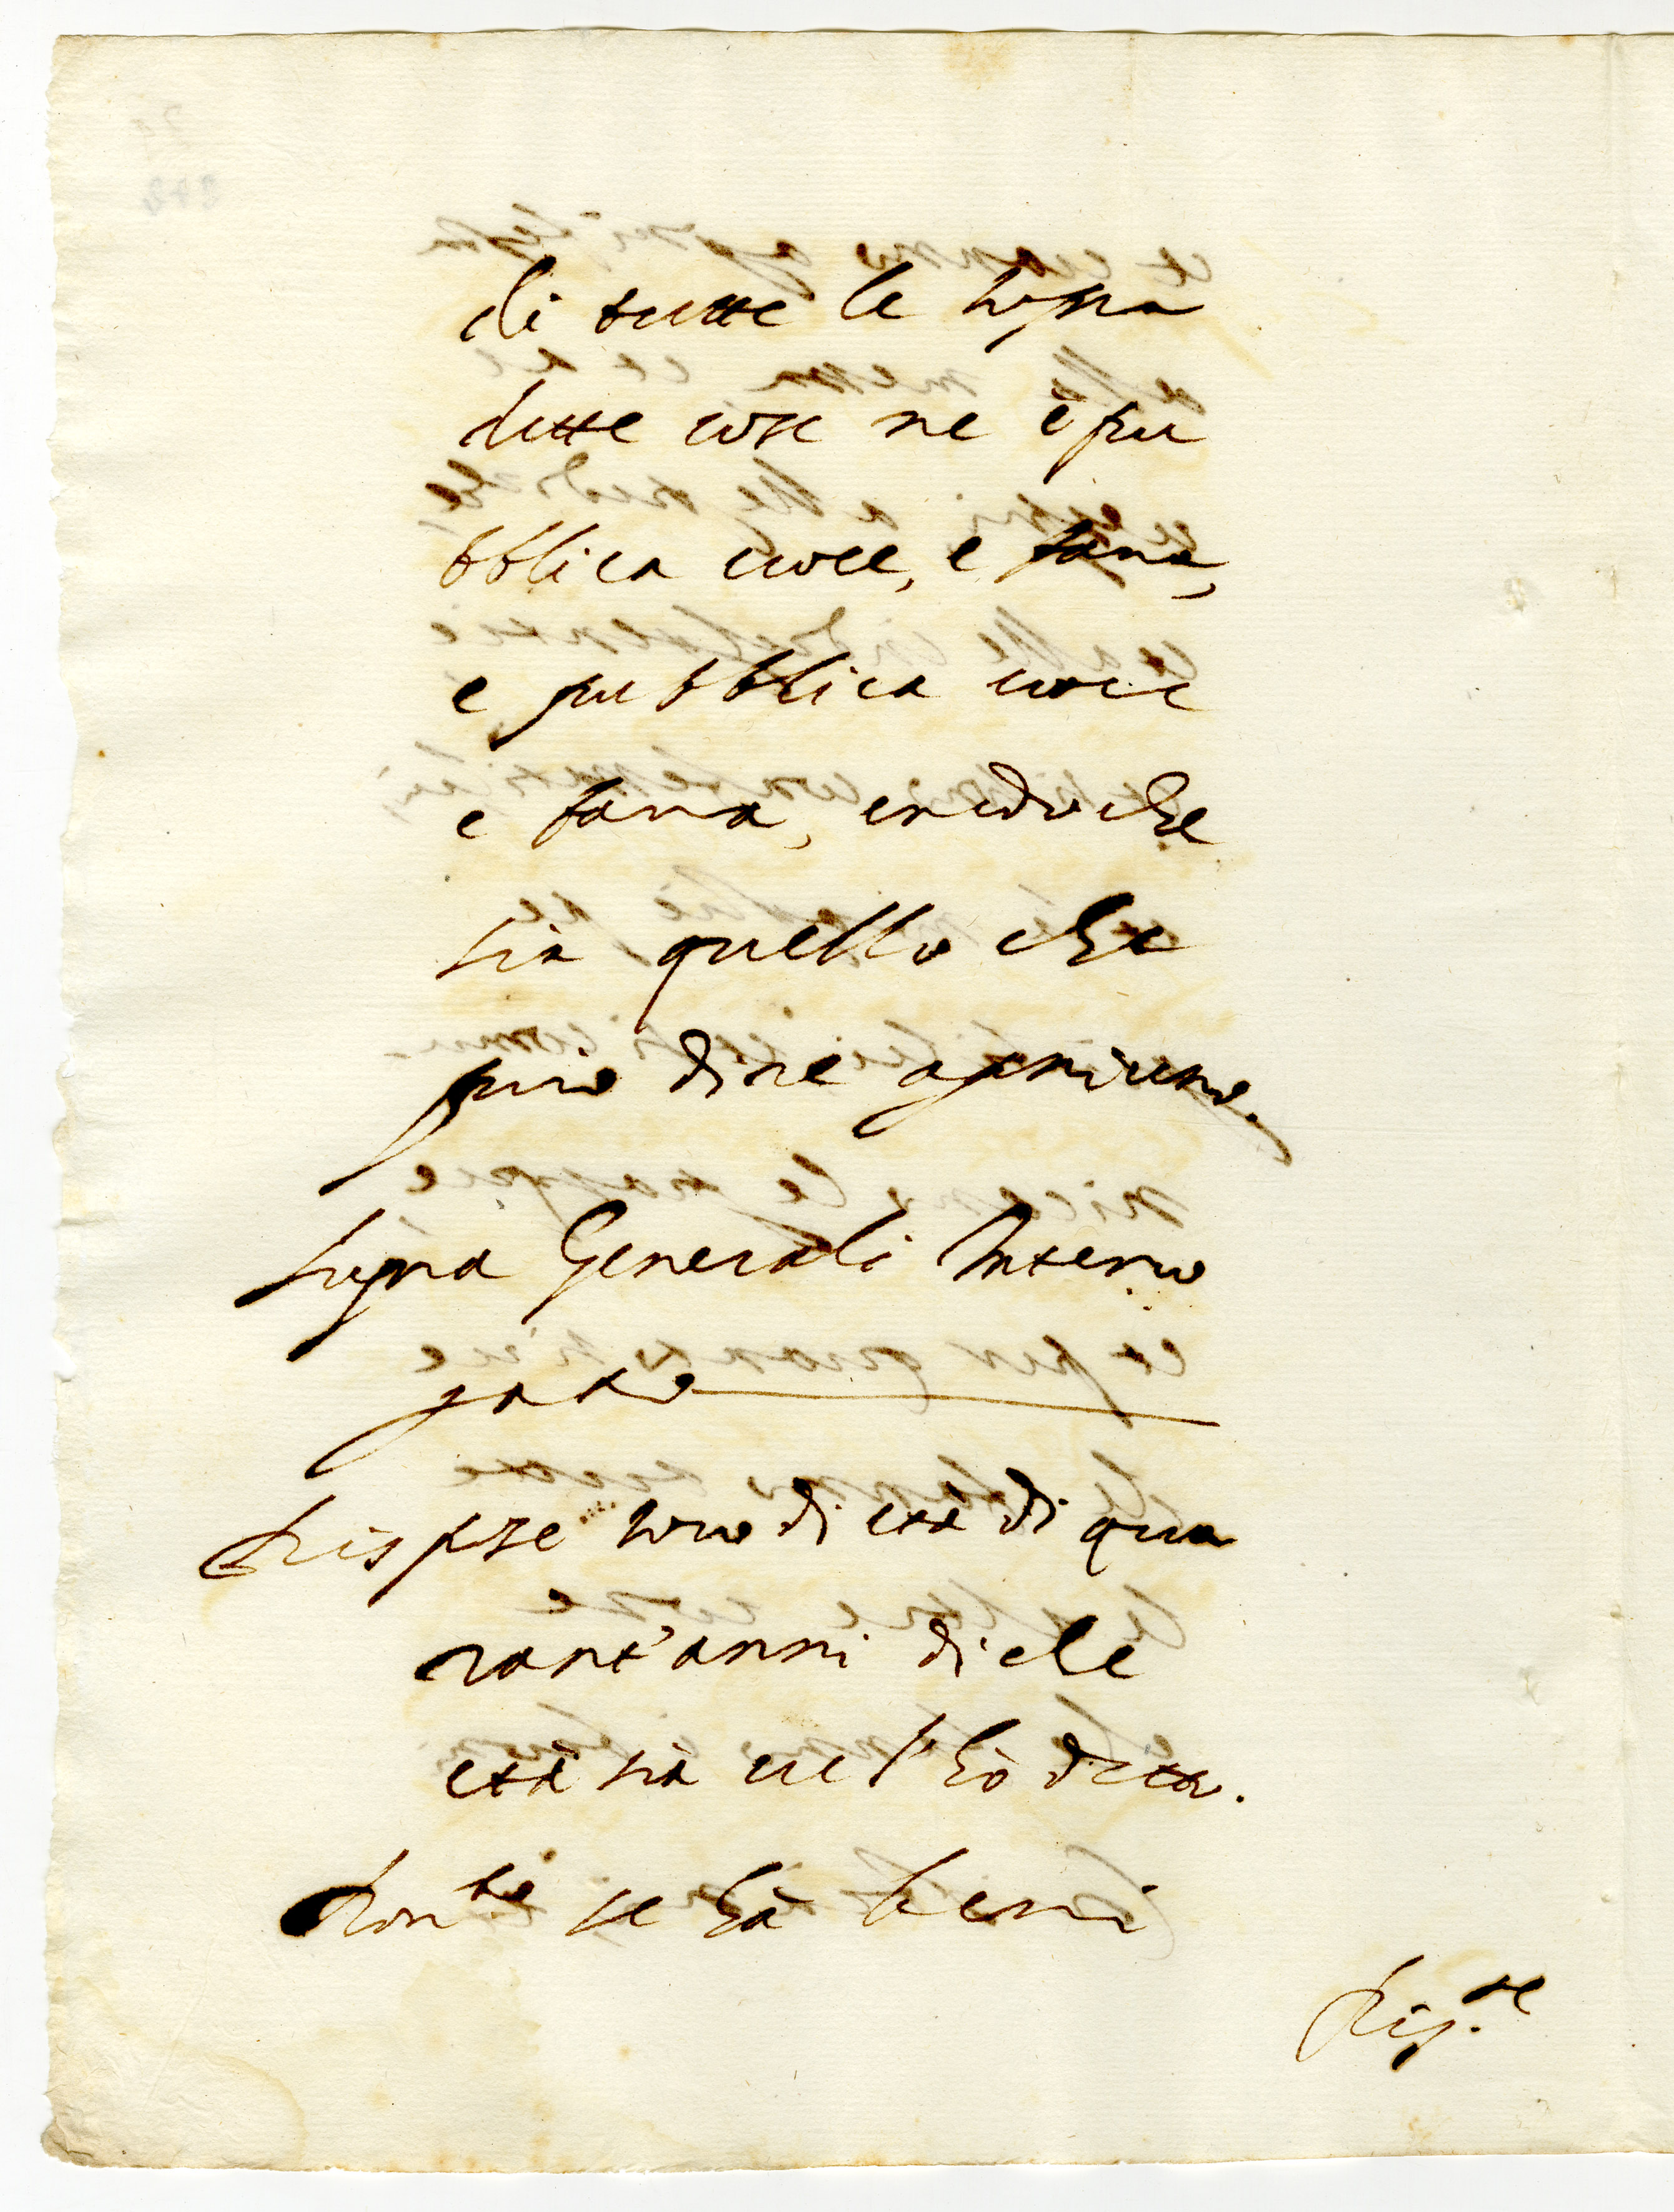 di tutte le sopra
dette cose ne è pu
bblica uoce, e fama,
e pubblica uoce
e fama, credo che
sia quello che
può dire ogniuno.
Supra Generali Interro
gato
Rispose sono di età di qua
rant'anni di che
età sia ue l'hò detto.
se hà beni
Risp.se